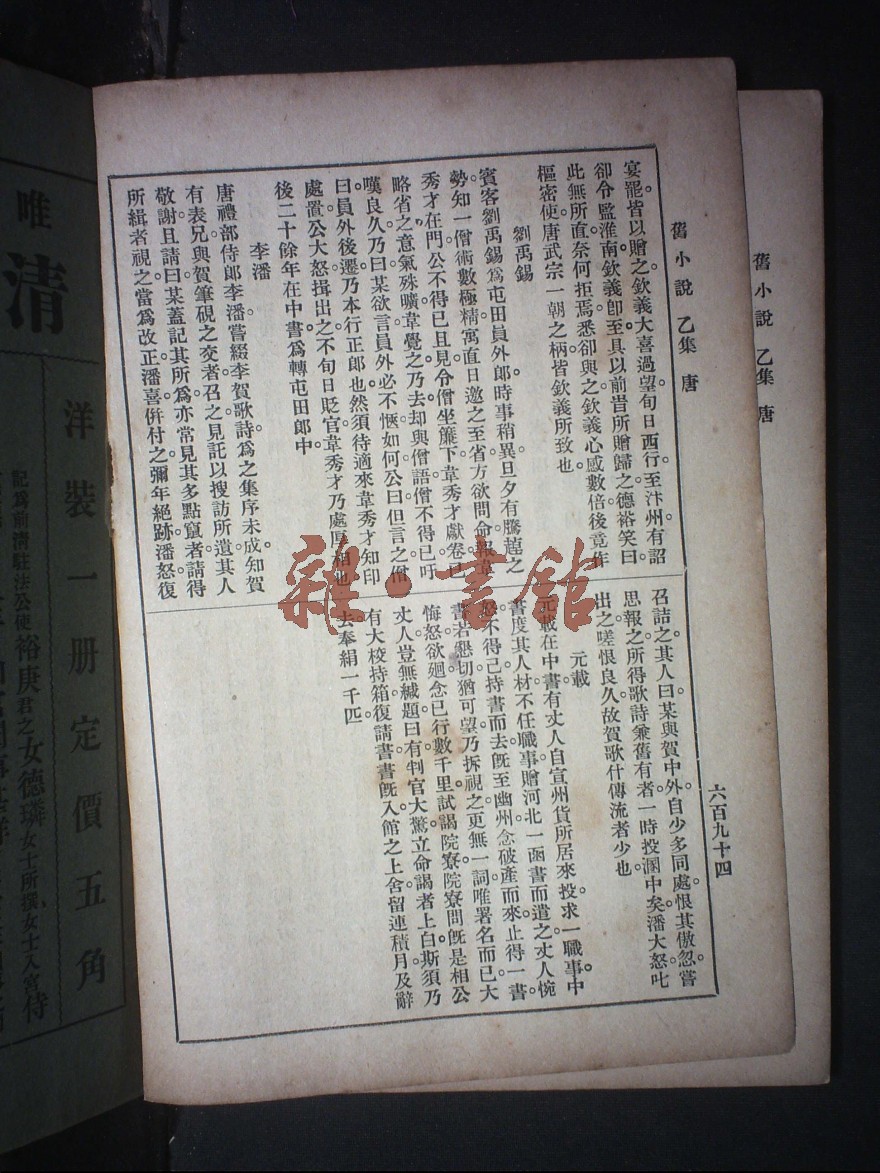 舊小說 乙集 唐
舊小說 乙集 唐
六百九十四
宴罷皆以贈之。欽義大喜過望。旬日西行。至汴州。有詔
卻令監淮南。欽義卽至。具以前旹所贈歸之。德裕笑曰。
此無所直。奈何拒焉。悉卻與之。欽義心感數倍。後竟作
樞密使。唐武宗一朝之柄。皆欽義所致也。
劉禹錫
賓客劉禹錫爲屯田員外郎。時事稍異。旦夕有騰趠之
勢。知一僧術數極精。寓直日邀之至省。方欲問命。報韋
秀才在門。公不得已且見。令僧坐簾下。韋秀才獻卷已。
略省之。意氣殊曠。韋覺之。乃去。却與僧語。僧不得已吁
嘆良久。乃曰。某欲言。員外必不愜。如何。公曰。但言之。僧
曰。員外後遷。乃本行正郎也。然須待適來韋秀才知印
處置。公大怒。揖出之。不旬日貶官。韋秀才乃處厚相也。
後二十餘年。在中書。爲轉屯田郎中。
李潘
唐禮部侍郎李潘嘗綴李賀歌詩。爲之集序未成。知賀
有表兄與賀筆硯之交者。召之見。託以搜訪所遺。其人
敬謝。且請曰。某蓋記其所爲。亦常見其多點竄者。請得
所緝者視之。當爲改正。潘喜。併付之。彌年絕跡。潘怒。復
召詰之。其人曰。某與賀中外。自少多同處。恨其傲忽。嘗
思報之。所得歌詩兼舊有者。一時投溷中矣。潘大怒。叱
出之。嗟恨良久。故賀歌什傳流者少也。
元載
元載在中書。有丈人自宣州貨所居來投。求一職事。中
書度其人材不任職事。贈河北一函書而遣之。丈人惋
怒。不得已持書而去。旣至幽州。念破產而來。止得一書。
書若懇切。猶可望。乃拆視之。更無一詞。唯署名而已。大
悔怒欲廻。念已行數千里。試謁院寮。院寮問旣是相公
丈人。豈無緘題。曰。有。判官大驚。立命謁者上白。斯須乃
有大校持箱復請書。書旣入。館之上舍。留連積月。及辭
去。奉絹一千匹
雜·書館
唯
清
洋裝一册定價五角
記爲前淸駐法公使裕庚君之女德
女士所撰女士入宮侍